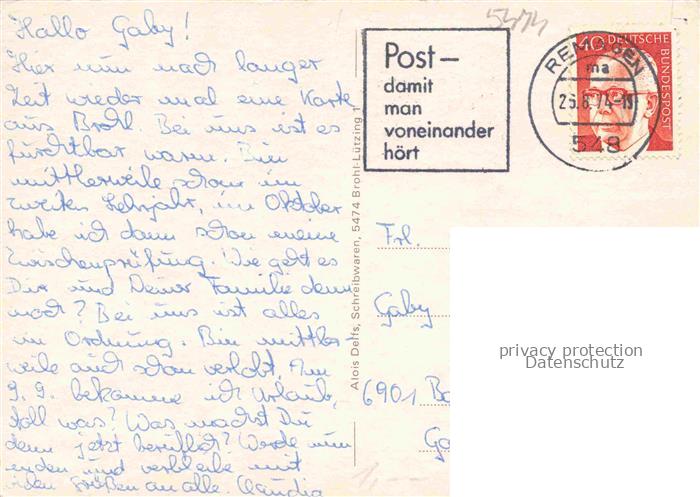 Hallo Gaby!
Hier nun nach langer
Zeit wieder mal eine Karte
aus Brohl Bei uns ist es
furchtbar warm. Bin
mittlerweile schon im
zweiten Lehrjahr, im Oktober
habe ich dann schon meine
Zwischenprüfung. Wie geht es
Dir und Deiner Familie denn
noch? Bei uns ist alles
in Ordnung. Bin mittler-
weile auch schon verlobt. Am
9.9. bekomme ich Urlaub,
toll was? Was machst Du
denn jetzt beruflich? Werde nun
enden und verbleibe mit
vielen Grüßen an alle. Claudia
Alois Delfs, Schreibwaren, 5474 Brohl-Lützing 1
5474
Post-
damit
man
voneinander
hört
REMAGEN
ma
26.8.74-19
548
40 DEUTSCHE
BUNDESPOST
Frl.
Gaby
6901 Ba
Ga
1,--
privacy protection
Datenschutz